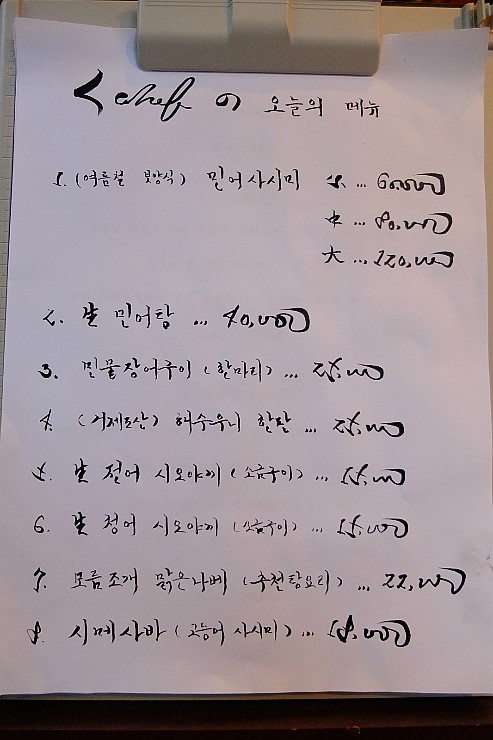 < chef の 오늘의 메뉴
1. (여름철 보양식) 민어사시미 小 ... 60,000
中 ... 80,000
大 ... 120,000
2. 生 민어탕 ... 40,000
3. 민물장어구이 (한마리) ... 25,000
4. (거제도산) 해수우니 한판 ... 25,000
5. 生 전어 시오야끼 (소금구이) ... 15,000
6. 生 청어 시오야끼 (소금구이) ... 15,000
7. 모듬조개 맑은나베 (추천탕요리) ... 22,000
8. 시메사바 (고등어 사시미) ... 18,000